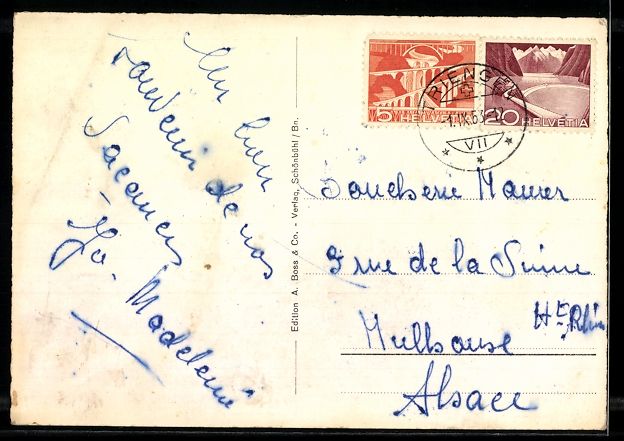 Un bon
souvenir de nos
vacances
Jo - Madeleine
Edition A. Boss & Co. - Verlag, Schönbühl / Bn.
5
HELVETIA
20
HELVETIA
TRIENGEN
1.IX.63
VII
Boucherie Maurer
rue de la Sinne
Ht Rhin
Mulhouse
Alsace